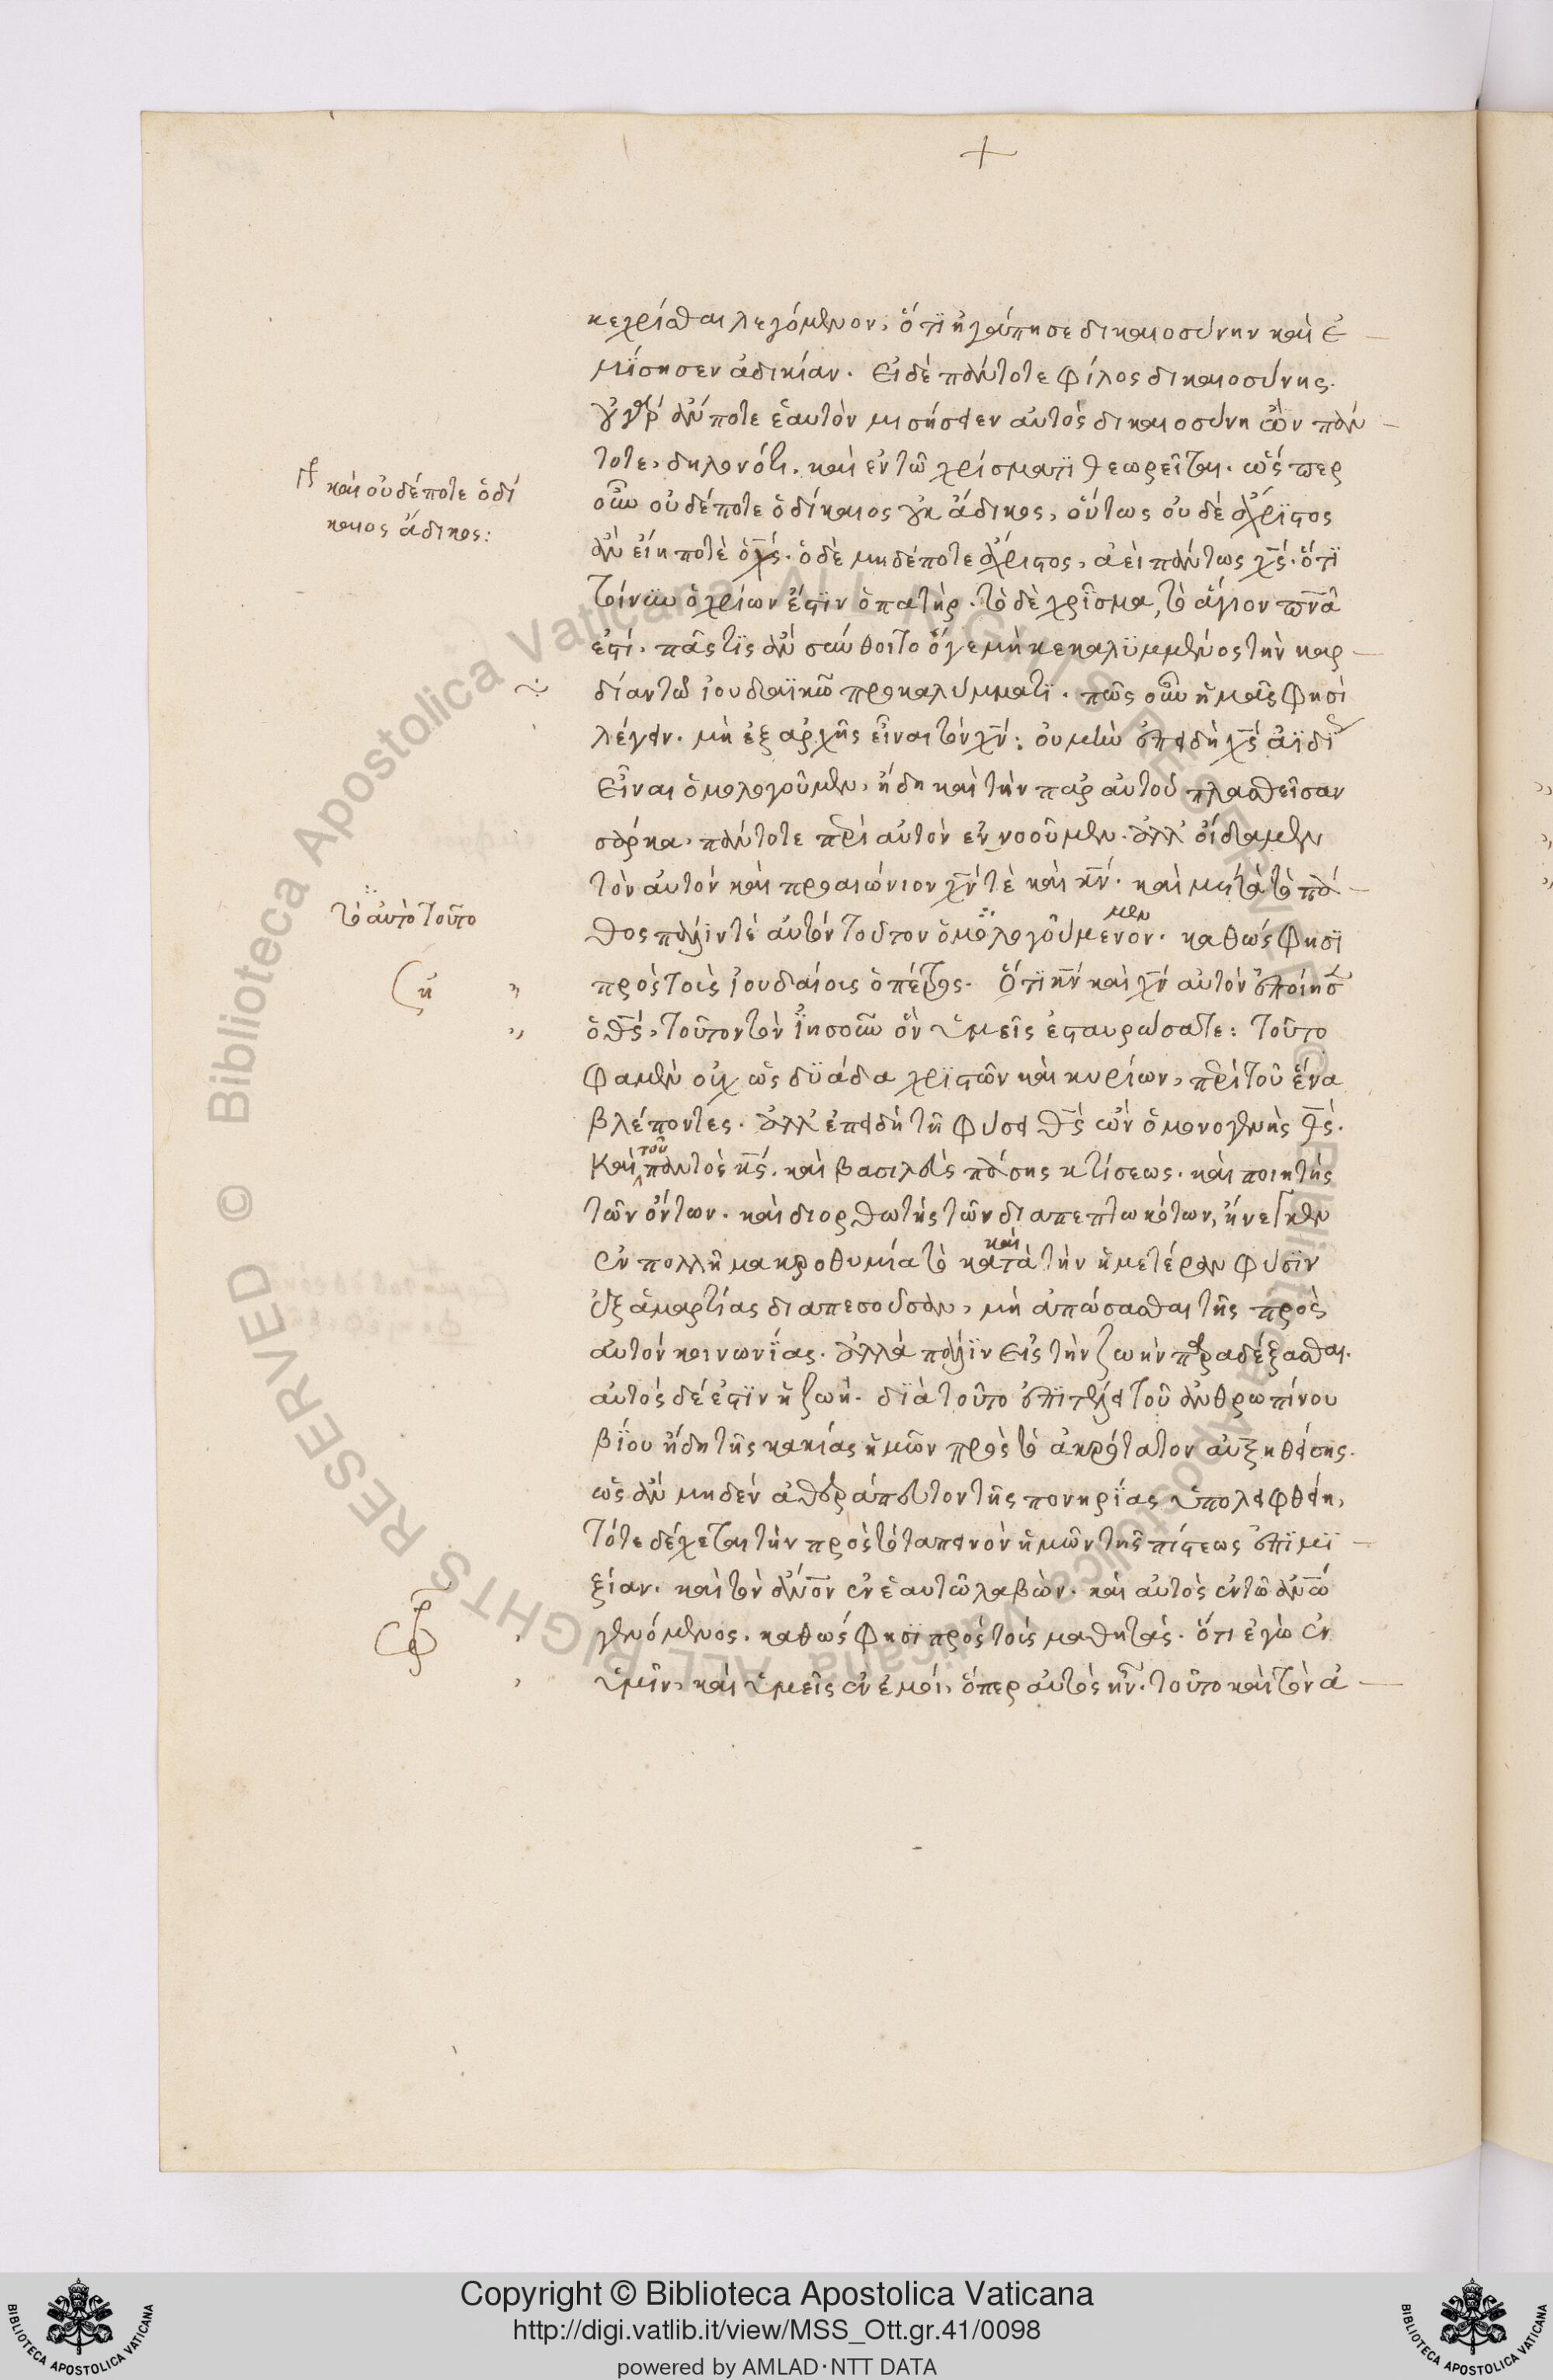 +
κεχρίσθαι λεγόμενον, ὅτι ἠγάπησε δικαιοσύνην καὶ ἐ
μίσησεν ἀδικίαν. Εἰ δὲ πάντοτε φίλος δικαιοσύνης.
οὐ γὰρ ἄν ποτε ἑαυτὸν μισήσειεν αὐτὸς δικαιοσύνη ὢν πάν
τοτε, δηλονότι. καὶ ἐν τῶ χρίσματι θεωρεῖται. ὥσπερ
καὶ οὐδέποτε ὁ δί
καιος ἄδικος:
οὖν οὐδέποτε ὁ δίκαιος οὐκ ἄδικος, οὕτως οὐδὲ ἄχριστος
ἂν εἴη ποτὲ ὁ χς. ὁ δὲ μηδέποτε ἄχριστος, ἀεὶ πάντως χς. ὅτι
τοίνυν ὁ χρίων ἐστὶν ὁ πατὴρ. τὸ δὲ χρῖσμα, τὸ ἅγιον πνα
ἐστί. πᾶς τις ἂν συνθοῖτο ὅγε μὴ κεκαλυμμένος τὴν καρ
δίαν τῶ ἰουδαϊκῶ προκαλύμματι. πῶς οὖν ἡμᾶς φησὶ
λέγειν. μὴ ἐξ ἀρχῆς εἶναι τὸν χν: οὐ μὴν ἐπειδὴ χς ἀΐδι
εἶναι ὁμολογοῦμεν, ἤδη καὶ τὴν παρ αὐτοῦ πλασθεῖσαν
σάρκα, πάντοτε περὶ αὐτὸν ἐννοοῦμεν. ἀλλ οἴδαμεν
τὸν αὐτὸν καὶ προαιώνιον χν τὲ καὶ κν. καὶ μετὰ τὸ πά
τὸ αὐτὸ τοῦτο
θος πάλιν τὲ αὐτὸν τοῦτον ὁμολογούμενον. καθώς φησι
μεν
πρὸς τοὺς ἰουδαίους ὁ πέτρος. Ὅτι κν καὶ χν αὐτὸν ἐποίησ
ὁ θς, τοῦτον τὸν ἰησοῦν ὃν ὑμεῖς ἐσταυρώσατε: τοῦτο
φαμὲν οὐχ ὡς δυάδα χριστῶν καὶ κυρίων, περὶ τοῦ ἕνα
βλέποντες. ἀλλ ἐπειδὴ τῆ φύσει θς ὢν ὁ μονογενὴς θς.
Καὶ τοῦ παντὸς κς. καὶ βασιλεὺς πάσης κτίσεως. καὶ ποιητὴς
τῶν ὄντων. καὶ διορθωτὴς τῶν διαπεπτωκότων, ἤνεγκεν
ἐν πολλῆ μακροθυμία τὸ κατὰ τὴν ἡμετέραν φύσιν
καὶ
ἐξ ἁμαρτίας διαπεσοῦσαν, μὴ ἀπώσασθαι τῆς πρὸς
αὐτὸν κοινωνίας. ἀλλὰ πάλιν εἰς τὴν ζωὴν παραδέξασθαι.
αὐτὸς δέ ἐστιν ἡ ζωὴ. διὰ τοῦτο ἐπὶ τέλει τοῦ ἀνθρωπίνου
βίου ἤδη τῆς κακίας ἡμῶν πρὸς τὸ ἀκρότατον αὐξηθείσης.
ὡς ἂν μηδὲν ἀθεράπευτον τῆς πονηρίας ὑπολειφθείη,
τότε δέχεται τὴν πρὸς τὸ ταπεινὸν ἡμῶν τῆς πίστεως ἐπιμι
ξίαν. καὶ τὸν ἄνον ἐν ἑαυτῶ λαβὼν. καὶ αὐτὸς ἐν τῶ ἀνω
γενόμενος. καθώς φησι πρὸς τοὺς μαθητὰς. ὅτι ἐγὼ ἐν
ὑμῖν, καὶ ὑμεῖς ἐν ἐμοί, ὅπερ αὐτὸς ἦν. τοῦτο καὶ τὸν ἀ
© Biblioteca Apostolica Vaticana ALL RIGHTS RESERVED
Copyright © Biblioteca Apostolica Vaticana
http://digi.vatlib.it/view/MSS_Ott.gr.41/0098
powered by AMLAD·NTT DATA
BIBLIOTECA APOSTOLICA VATICANA
BIBLIOTECA APOSTOLICA VATICANA